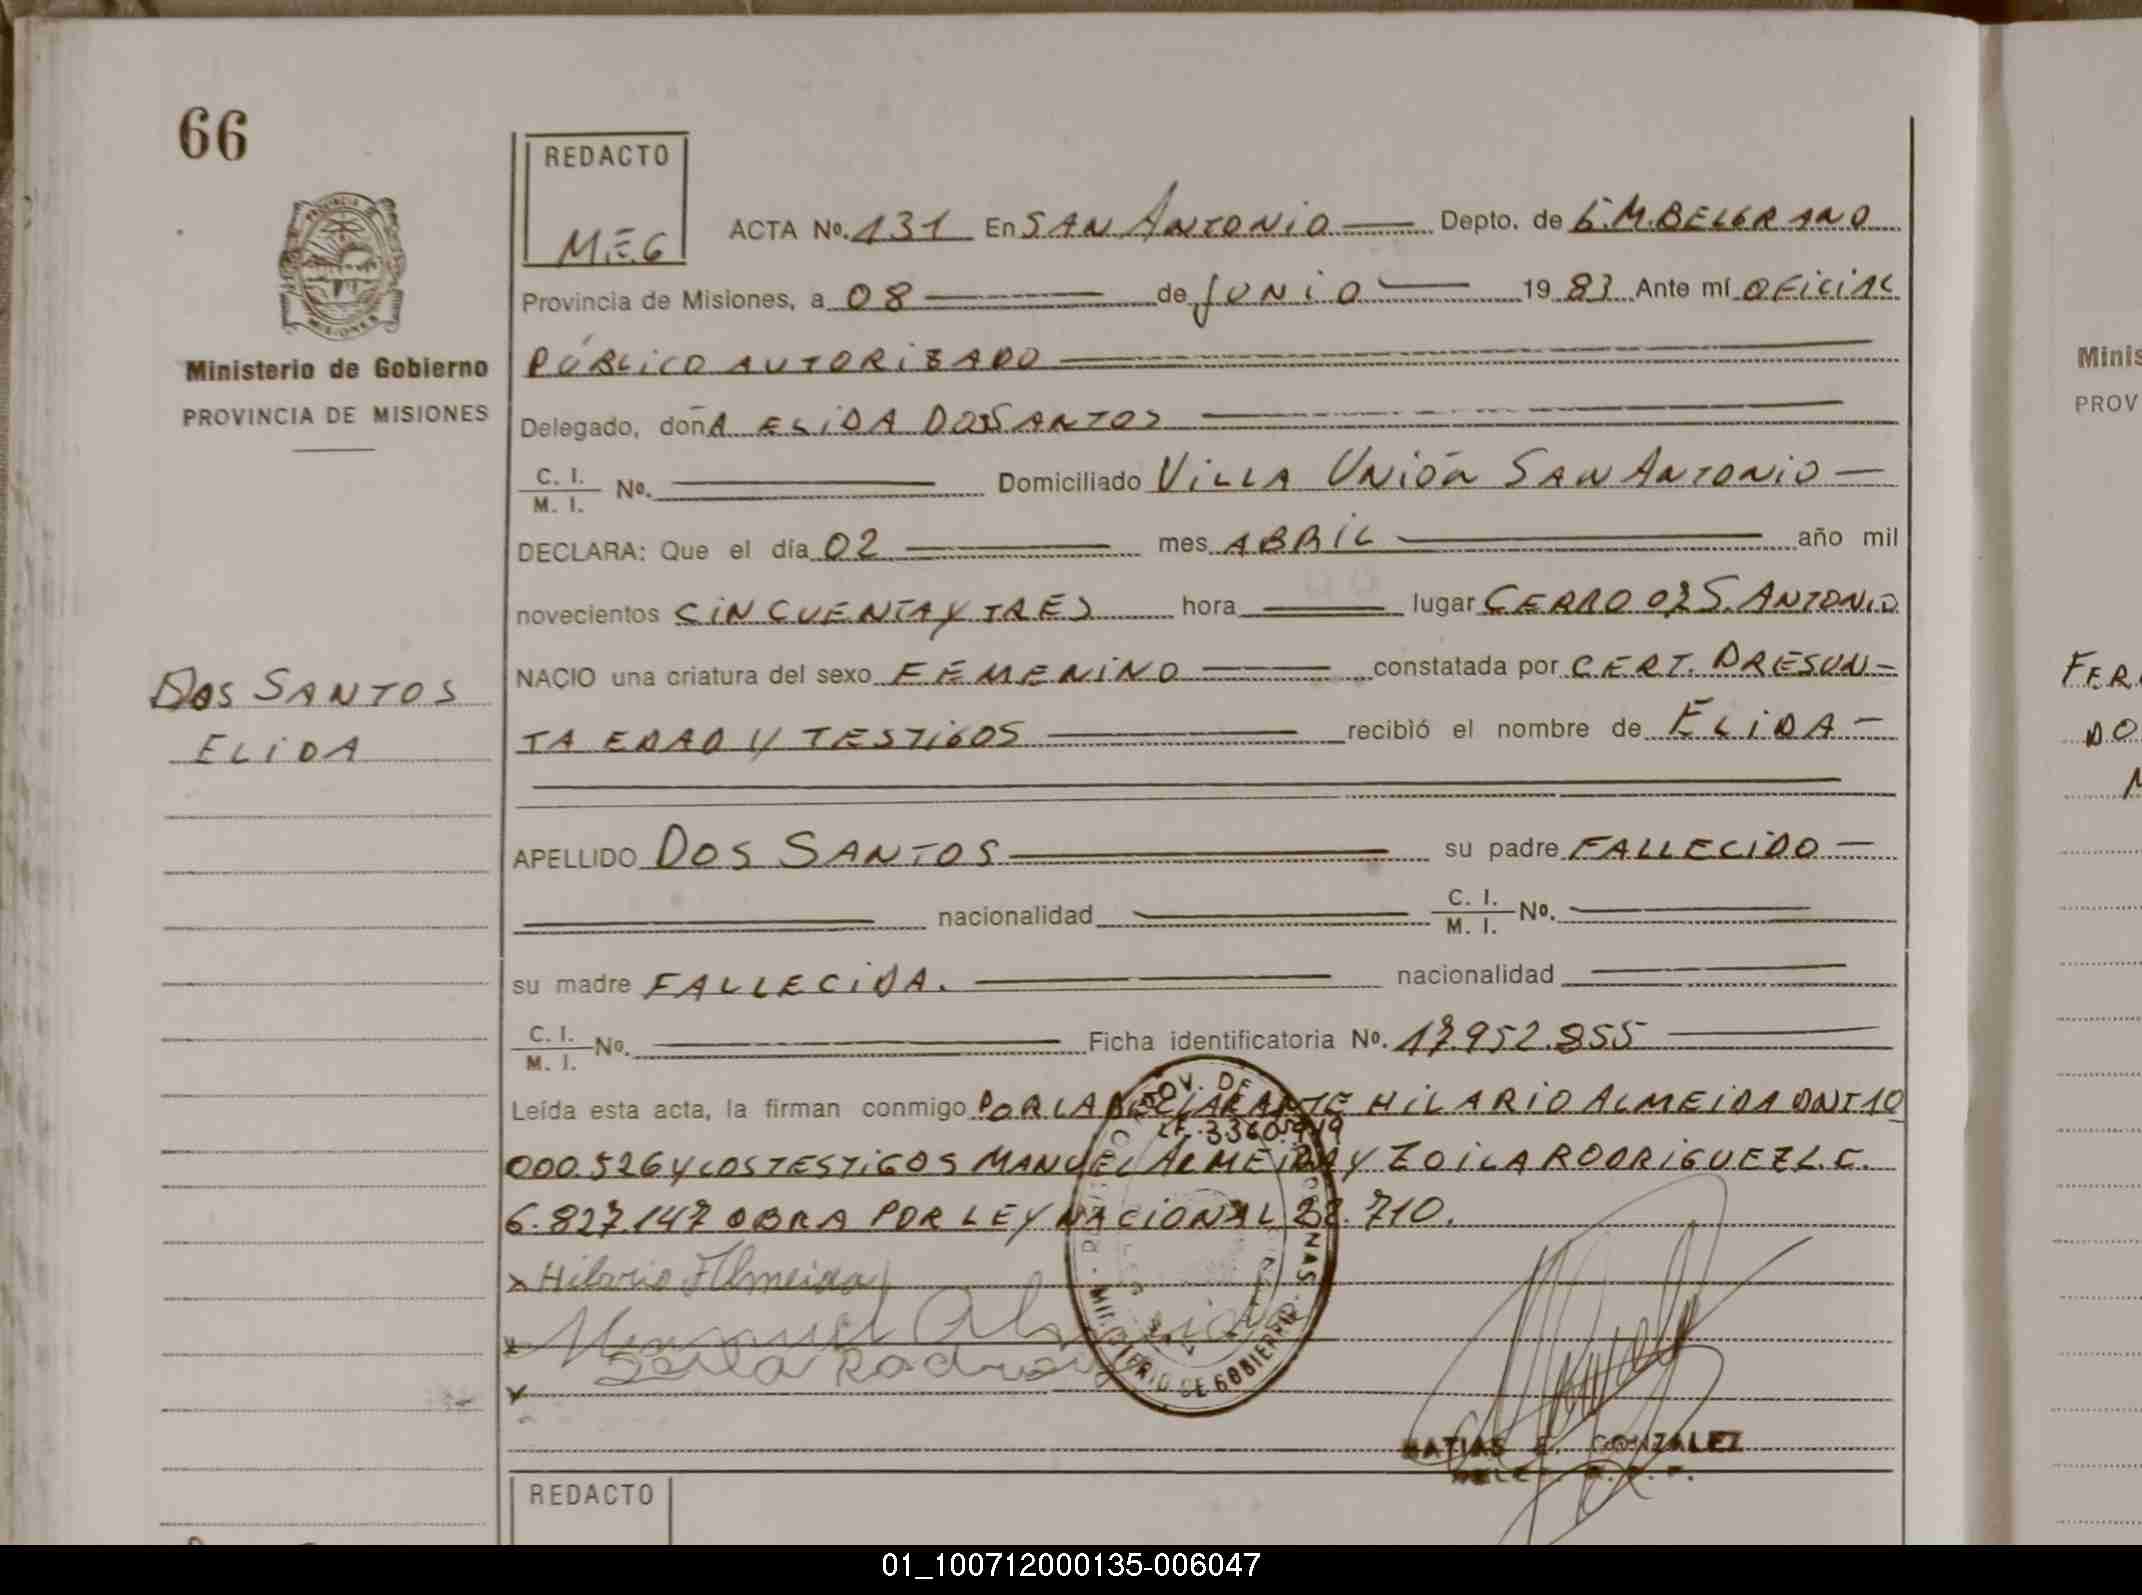 66
REDACTO
M.E.G
ACTA No. 131 En SAN ANTONIO Depto. de G.M.BELGRANO
Provincia de Misiones, a 08 de JUNIO 1983 Ante mí OFICIAL
PÚBLICO AUTORIZADO
Ministerio de Gobierno
PROVINCIA DE MISIONES
Delegado, doñA ELIDA DOS SANTOS
C. I.
M. I. No. Domiciliado VILLA UNIÓN SAN ANTONIO
DECLARA: Que el día 02 mes ABRIL año mil
novecientos CINCUENTA Y TRES hora lugar CERRO 025. ANTONIO
NACIO una criatura del sexo FEMENINO constatada por CERT. PRESUN-
DOS SANTOS
ELIDA
TA EDAD Y TESTIGOS recibió el nombre de ELIDA
APELLIDO DOS SANTOS su padre FALLECIDO
nacionalidad C. I.
M. I. No.
su madre FALLECIDA. nacionalidad
C. I.
M. I. No. Ficha identificatoria No. 17.952.855
Leída esta acta, la firman conmigo POR LA DECLARANTE HILARIO ALMEIDA DNI 10
000.526 Y LOS TESTIGOS MANUEL ALMEIDA Y ZOILA RODRIGUEZ L.C.
6.827.147 OBRA POR LEY NACIONAL 22.710.
x Hilario Almeida
x Manuel Almeida
x Zoila Rodrig
PROV. DE MISIONES
MINISTERIO DE GOBIERNO
MATIAS E. GONZALEZ
REDACTO
Minis
PROV
FER
DO
01_100712000135-006047